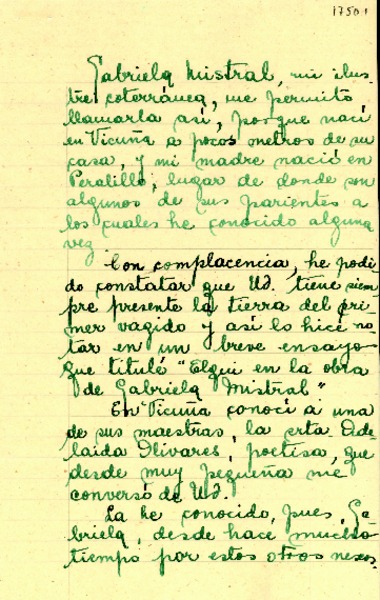 17501
Gabriela Mistral, mi ilus-
tre coterránea, me permito
llamarla así, porque nací
en Vicuña a pocos metros de su
casa, y mi madre nació en
Peralillo, lugar de donde son
algunos de sus parientes a
los cuales he conocido alguna
vez
Con complacencia, he podi
do constatar que Ud. tiene siem
pre presente la tierra del pri
mer vagido y así lo hice no
tar en un breve ensayo
que titulé "Elqui en la obra
de Gabriela Mistral"
En Vicuña conocí a una
de sus maestras, la srta. Ade
laida Olivares, poetisa, que
desde muy pequeña me
conversó de Ud.
La he conocido, pues, Ga
briela, desde hace mucho
tiempo por estos otros nexos.